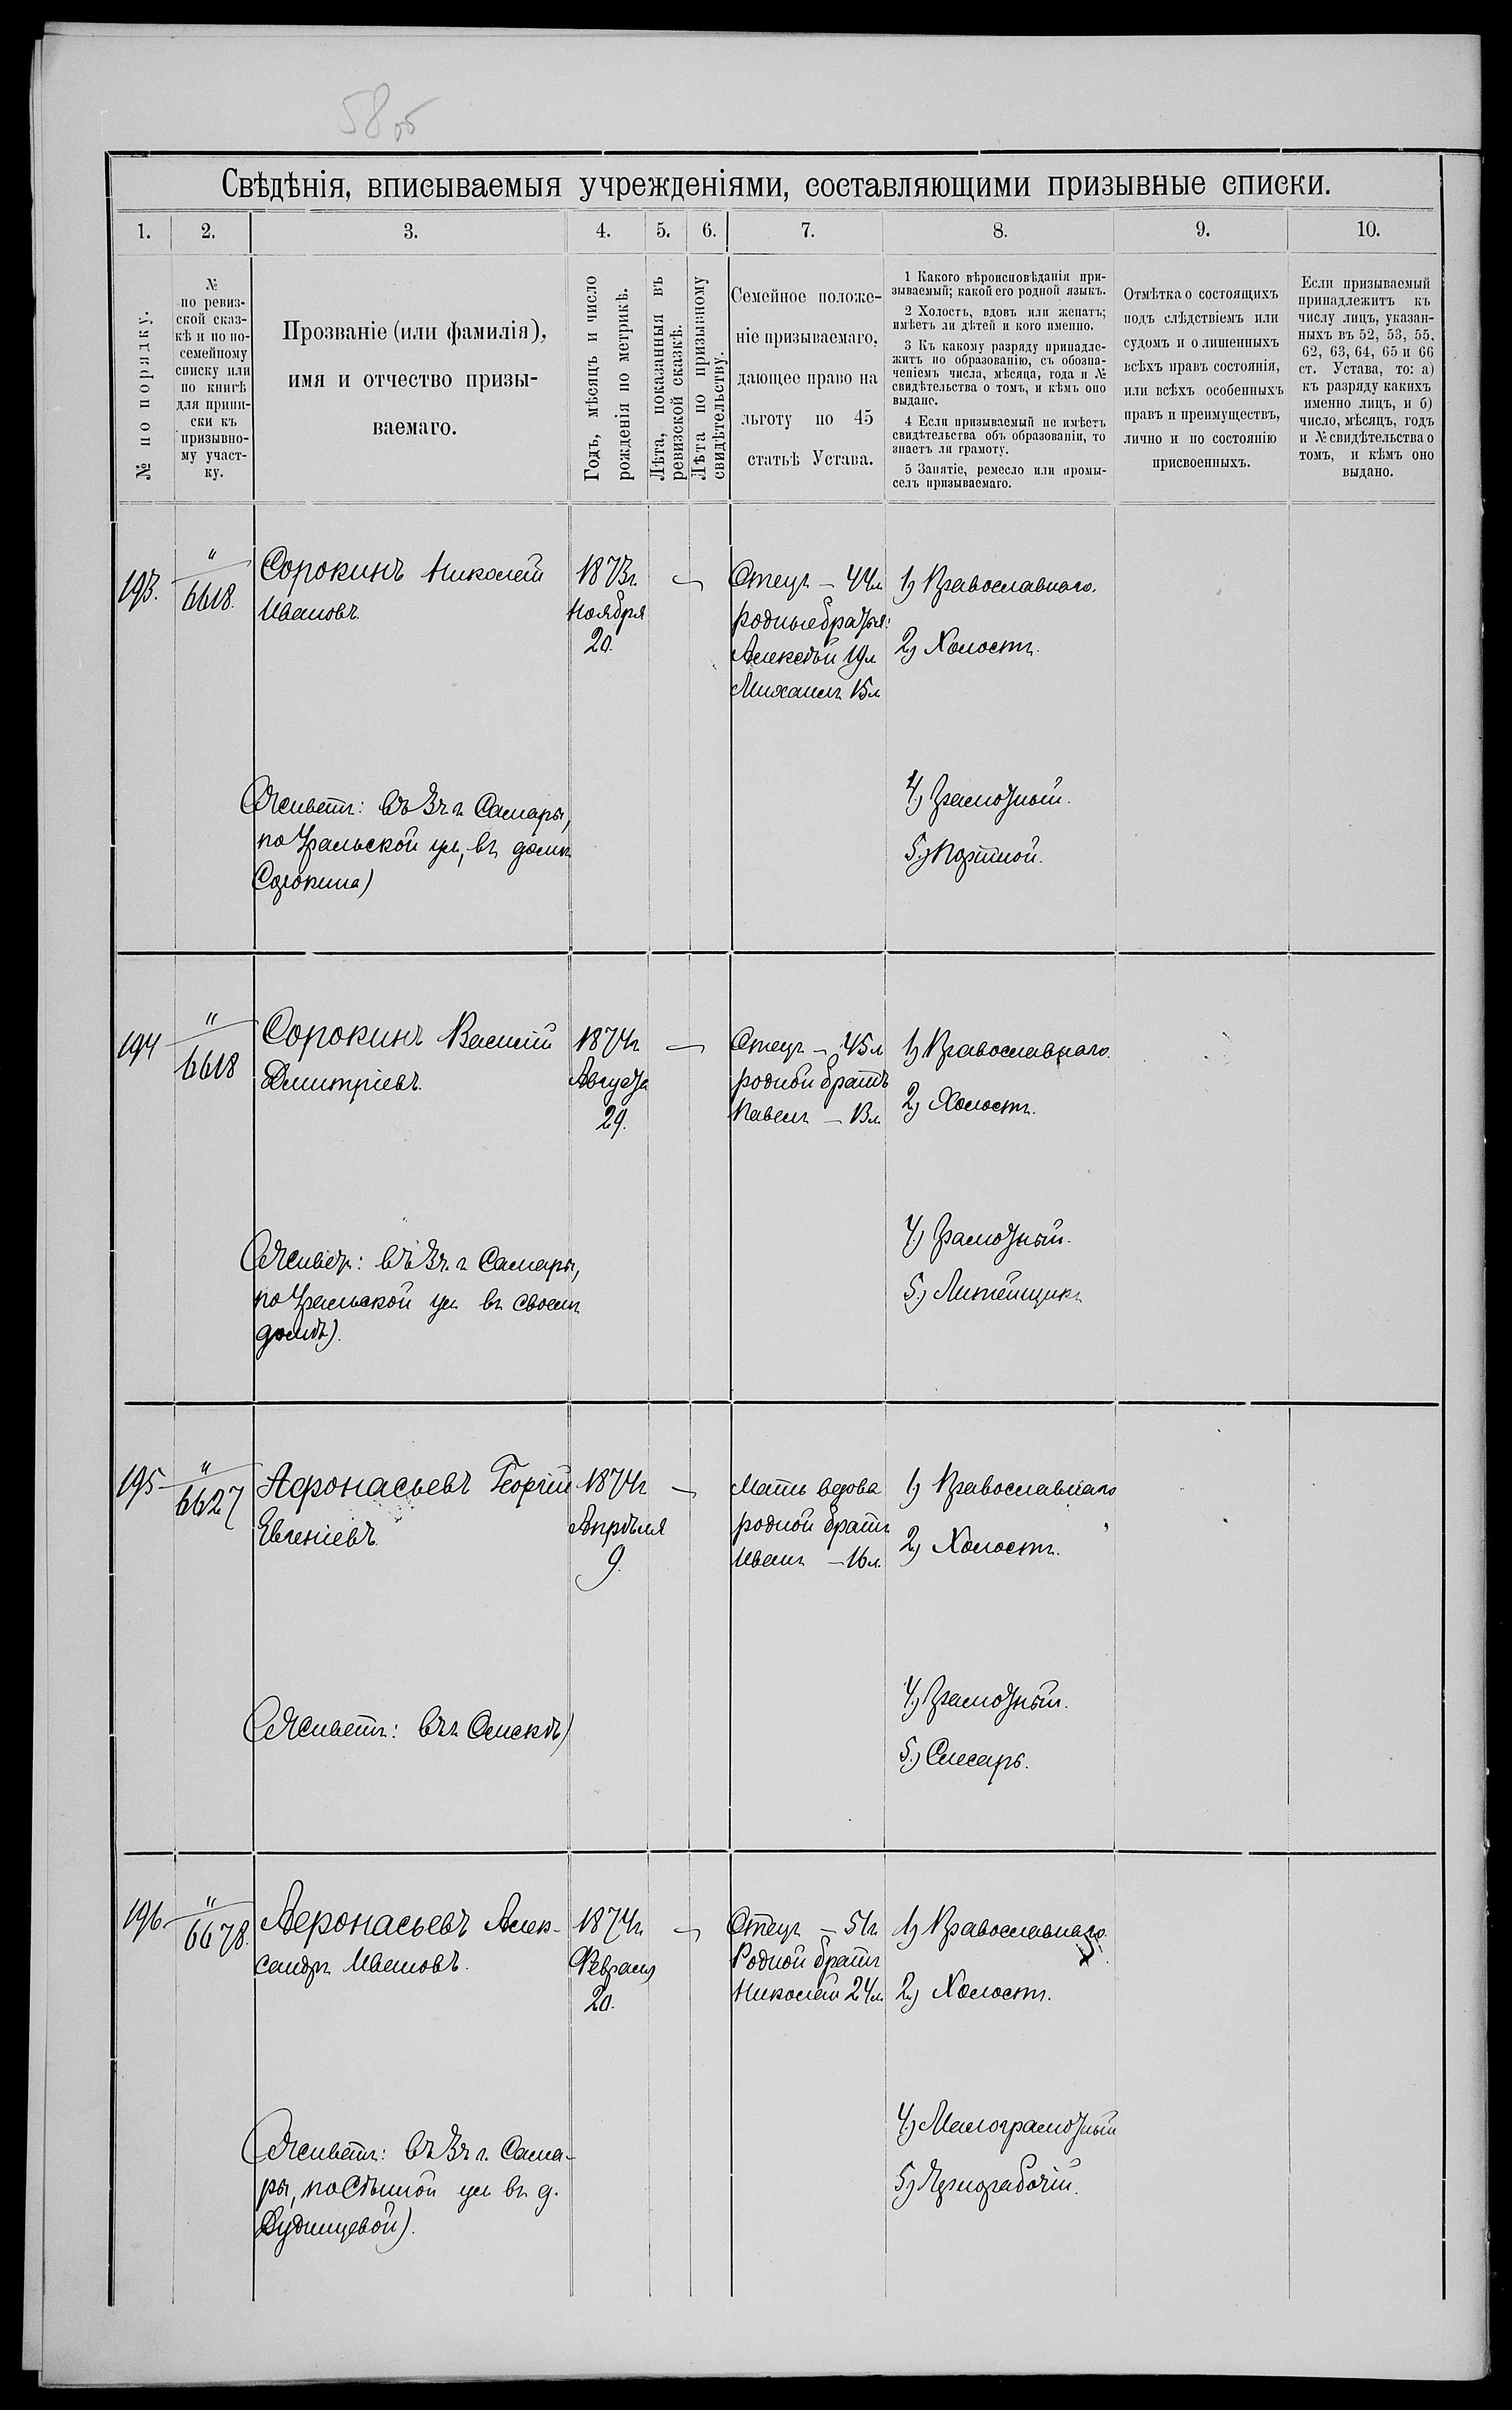 58 об
Свѣдѣнія, вписываемыя учрежденіями, составляющими призывные списки.
1. 2. 3. 4. 5. 6. 7. 8. 9. 10.
№ по порядку.
№
по ревиз-
ской сказ-
кѣ и по по-
семейному
списку или
по книгѣ
для припи-
ски къ
призывно-
му участ-
ку.
Прозваніе (или фамилія),
имя и отчество призы-
ваемаго.
Годъ, мѣсяцъ и число
рожденія по метрикѣ.
Лѣта, показанныя въ
ревизской сказкѣ.
Лѣта по призывному
свидѣтельству.
Семейное положе-
ніе призываемаго,
дающее право на
льготу по 45
статьѣ Устава.
1 Какого вѣроисповѣданія при-
зываемый; какой его родной языкъ.
2 Холостъ, вдовъ или женатъ;
имѣетъ ли дѣтей и кого именно.
3 Къ какому разряду принадле-
житъ по образованію, съ обозна-
ченіемъ числа, мѣсяца, года и №
свидѣтельства о томъ, и кѣмъ оно
выдано.
4 Если призываемый не имѣетъ
свидѣтельства объ образованіи, то
знаетъ ли грамоту.
5 Занятіе, ремесло или промы-
селъ призываемаго.
Отмѣтка о состоящихъ
подъ слѣдствіемъ или
судомъ и о лишенныхъ
всѣхъ правъ состоянія,
или всѣхъ особенныхъ
правъ и преимуществъ,
лично и по состоянію
присвоенныхъ.
Если призываемый
принадлежитъ къ
числу лицъ, указан-
ныхъ въ 52, 53, 55,
62, 63, 64, 65 и 66
ст. Устава, то: а)
къ разряду какихъ
именно лицъ, и б)
число, мѣсяцъ, годъ
и № свидѣтельства о
томъ, и кѣмъ оно
выдано.
193.
"
6618.
Сорокинъ Николай
Ивановъ.
(Живетъ: въ 3 ч. г. Самары,
по Уральской ул, въ домѣ
Сорокина)
1873г.
Ноября
20.
—
Отецъ — 44л
родные братья:
Алексѣй 19л
Михаилъ 15л
1) Православнаго.
2) Холостъ.
4) Грамотный.
5) Портной.
194
"
6618
Сорокинъ Василій
Дмитріевъ.
(Живетъ: въ 3 ч. г. Самары,
по Уральской ул въ своемъ
домѣ).
1874г
Августа
29.
—
Отецъ — 45л
родной братъ
Павелъ — 13л.
1) Православнаго.
2) Холостъ.
4) Грамотный.
5) Литейщикъ
195
"
6627
Афонасьевъ Георгій
Евгеніевъ.
(Живетъ: въ г. Омскѣ)
1874г
Апрѣля
9.
—
Мать вдова
родной братъ
Иванъ — 16л.
1) Православнаго
2) Холостъ.
4) Грамотный.
5) Слесарь.
196
"
6678.
Афонасьевъ Алек-
сандръ Ивановъ.
(Живетъ: въ 3 ч г. Сама-
ры, по Сѣнной ул въ д.
1874г.
Февраля
20.
—
Отецъ — 51г.
Родной братъ
Николай 24л.
1) Православнаго.
2) Холостъ.
4) Малограмотный
5) Чернорабочій.